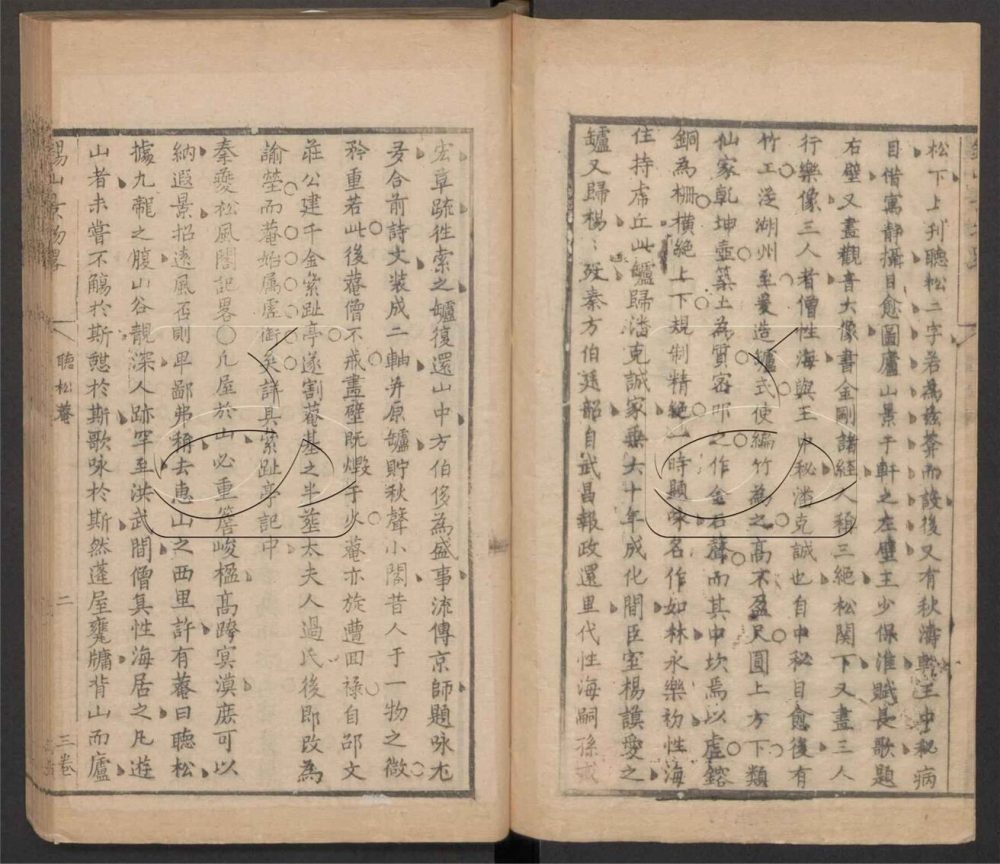 松下上刊聽松二字若為茲菴而設後又有秋濤軒王中秘病
目借寓靜攝目愈圖廬山景于軒之左壁王少保淮賦長歌題
右壁又畫觀音大像書金剛諸經人稱三絕松關下又畫三人
行樂像三人者僧性海與王中秘潘克誠也自中秘目愈後有
竹工湖州至爰造爐式使編竹為之高不盈尺圓上方下類
仙家乾坤壺築土為質密叩之作金石聲而其中坎焉以虛鎔
銅為柵橫絕上下規制精絕一時題家名作如林永樂初性海
住持虎丘此爐歸潘克誠家乗六十年成化間臣室楊謨愛之
爐又歸楊〻歿秦方伯廷韶自武昌報政還里代性海嗣孫戒
宏草疏徃索之爐復還山中方伯侈為盛事流傳京師題咏尤
多合前詩文裝成二軸并原爐貯秋聲小閣昔人于一物之微
矜重若此後菴僧不戒畫壁既燬于火菴亦旋遭回祿自邵文
莊公建千金索趾亭遂割菴基之半塟太夫人過氏後即改為
諭塋而菴始属虛銜矣詳具索趾亭記中
秦夔松風閣記畧〇凡屋於山必重簷峻楹高跨㝠漠庶可以
納遐景招遠風否則卑鄙弗稱去惠山之西里許有菴曰聽松
據九龍之腹山谷靚深人跡罕至洪武間僧真性海居之凡遊
山者未嘗不觴於斯憇於斯歌咏於斯然蓬屋甕牗背山而廬
錫山景物畧
聽松菴
二
三卷